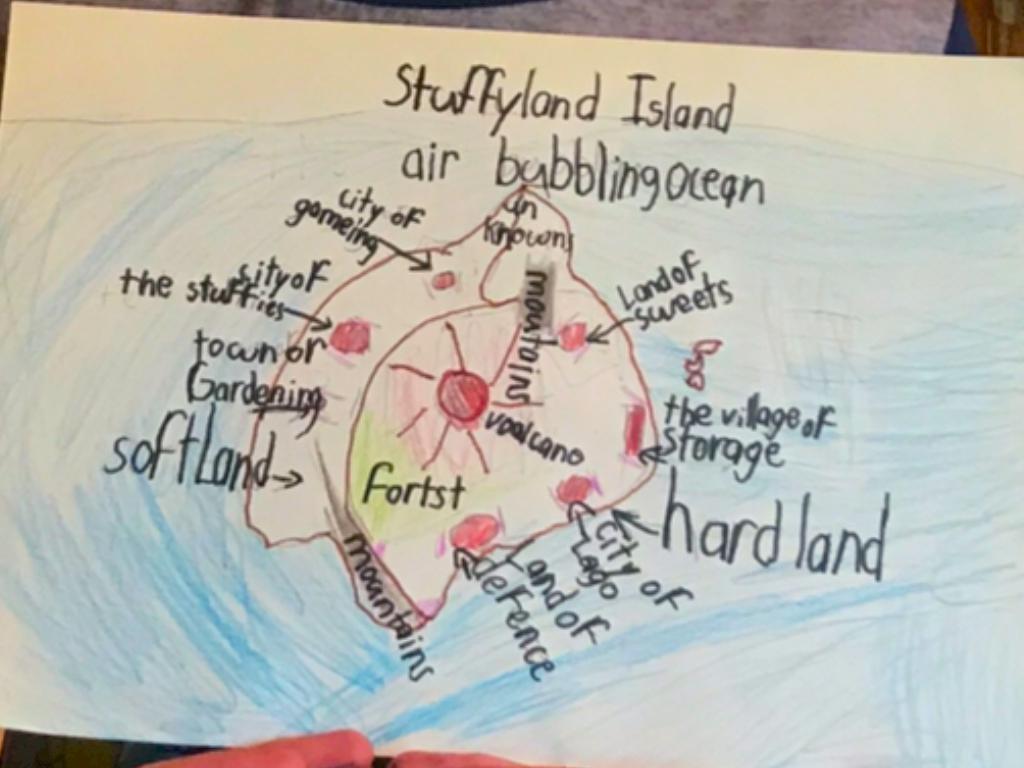 Stuffyland Island
air bubbling ocean
un
known
city of
gameing
sity of
the stuffies
town of
Gardening
softLand
mountains
Land of
sweets
the village of
storage
voolcano
fortst
hard land
city of
Lago
Land of
defence
mountains